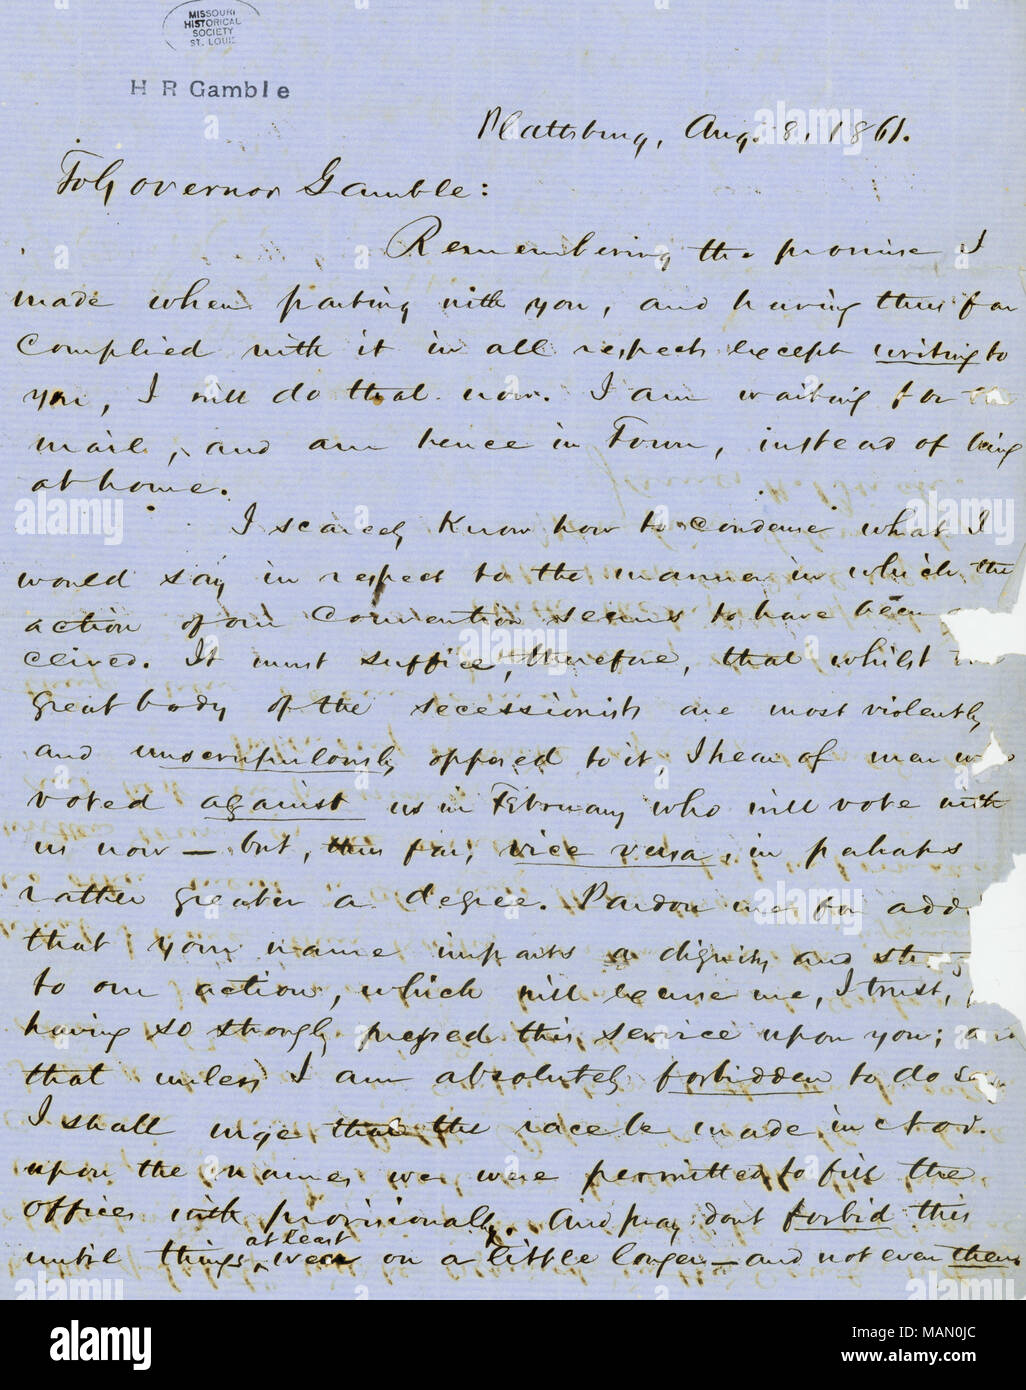 MISSOURI
HISTORICAL
SOCIETY
ST. LOUIS
H R Gamble
Plattsburg, Aug. 8, 1861.
To Governor Gamble:
Remembering the promise I
made when parting with you, and having thus far
complied with it in all respects except writing to
you, I will do that now. I am waiting for the
mail, and am hence in Town, instead of being
at home.
I scarcely know how to condense what I
would say in respect to the manner in which the
action of our Convention seems to have been
ceived. It must suffice, therefore, that whilst the
great body of the secessionists are most violently
and unscrupulously opposed to it, I hear of men who
voted against us in February who will vote with
us now — but, thus far, vice versa, in perhaps
rather greater a degree. Pardon me for add
that your name imparts a dignity and
to our action, which will excuse me, I trust,
having so strongly pressed this service upon you; and
that unless I am absolutely forbidden to do so,
I shall urge that the race be made in Nov.
upon the names we were permitted to fill the
offices with provisionally. And pray dont forbid this
until things at least wear on a little longer — and not even then
alamy
Image ID: MAN0JC
www.alamy.com